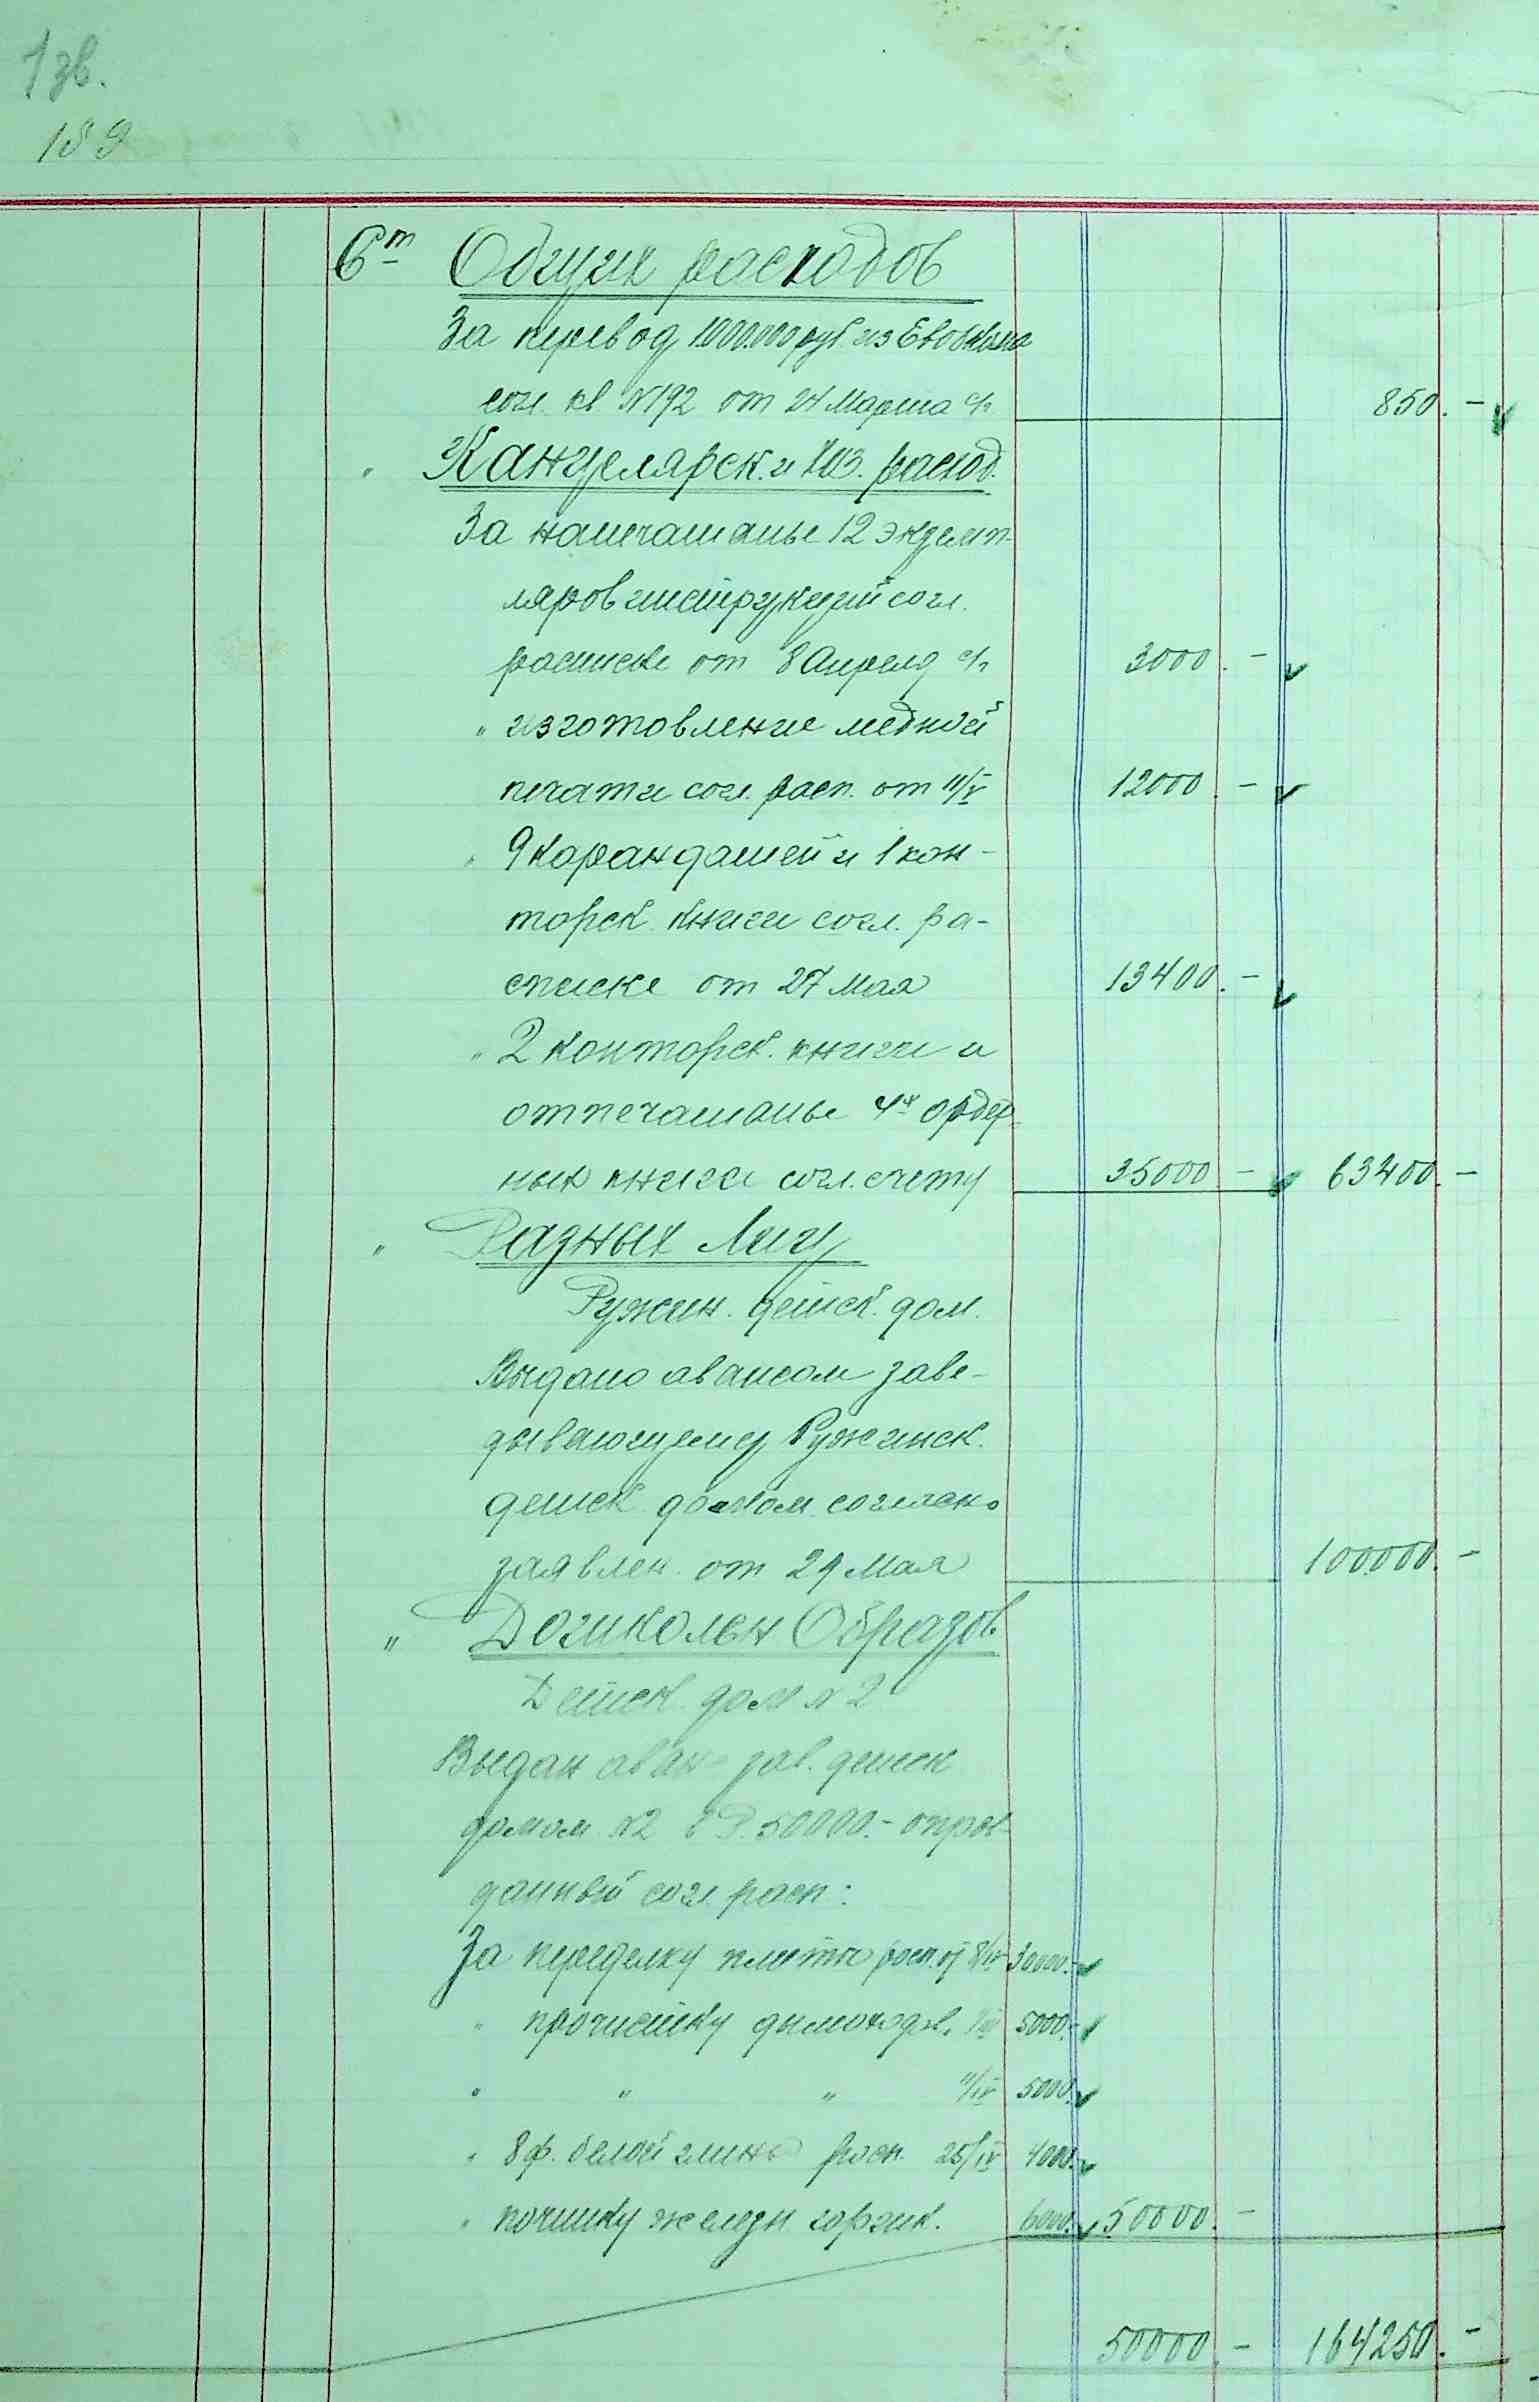 1 зв.
159
Ст Общих расходов
За перевод 1000.000 руб. из Евобкома
согл. кв №192 от 24 Марта с/г 850.-
" Канцелярск. и хоз. расход.
За напечатанье 12 экземп-
ляров инструкций согл.
расписке от 8 Апреля с/г 3000.-
" изготовление медной
печати согл. расп. от 11/V 12000.-
" 9 карандашей и 1 кон-
торск. книги согл. ра-
списке от 27 Мая 13400.-
" 2 конторск. книги и
отпечатанье 4х ордер-
ных книги согл. счету 35000 - 63400.-
" Разных Лиц
Ружин. детск. дом.
Выдано авансом заве-
дывающему Ружинск.
детск. домом согласно
заявлен. от 29 Мая 100.000.-
" Дошкольн Образов.
Детск. дом №2
Выдан аван зав. детск
домом №2 в Р. 50000.- оправ-
данный согл. расп:
За переделку плиты расп. от 8/IV 30000.-
" прочистку дымоход. 5000.-
" " " 11/IV 5000.-
" 8 ф. белой глины расп. 25/IV 4000.-
" починку железн. 6000. 50000.-
50000.- 164250.-